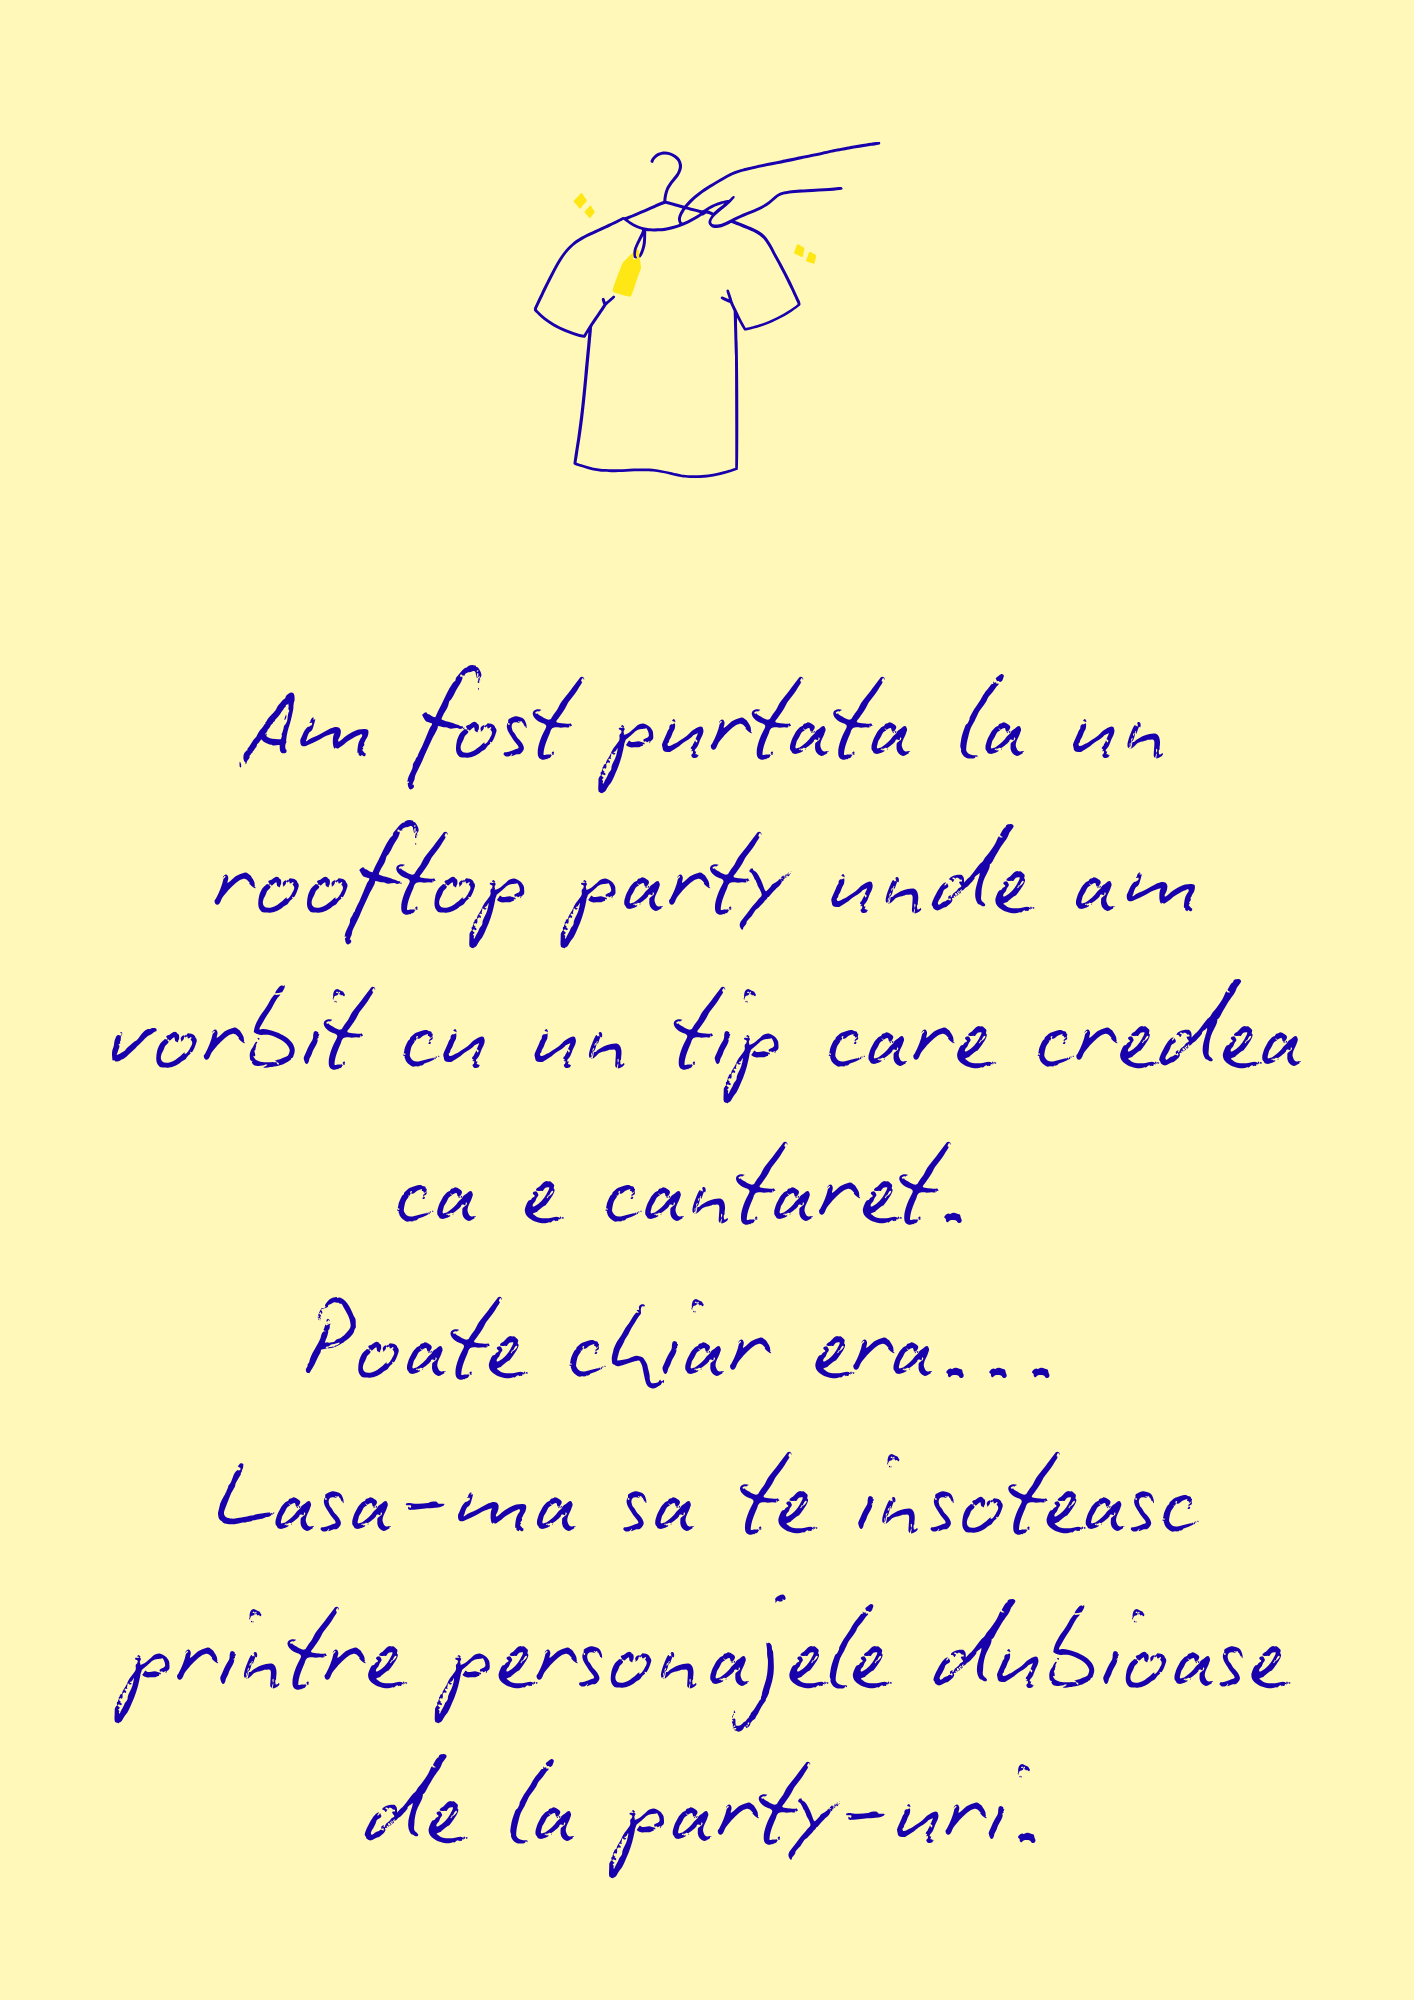 Am fost purtata la un
rooftop party unde am
vorbit cu un tip care credea
ca e cantaret.
Poate chiar era...
Lasa-ma sa te insoteasc
printre personajele dubioase
de la party-uri.